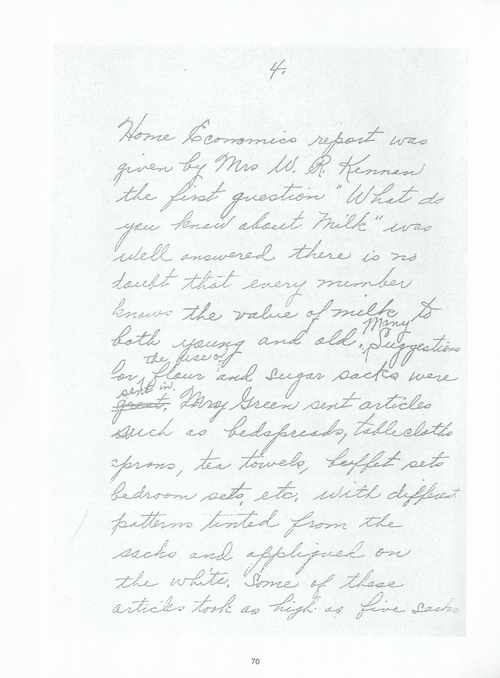 4.
Home Economics report was
given by Mrs W. R. Kennan
the first question "What do
you know about Milk" was
well answered there is no
doubt that every member
knows the value of milk to
both young and old. Many Suggestions
for the use of flour and sugar sacks were
sent in. Mrs Green sent articles
such as bedspreads, tablecloths
aprons, tea towels, buffet sets
bedroom sets, etc. with different
patterns tinted from the
sacks and appliqued on
the white. Some of these
articles took as high as five sacks
70